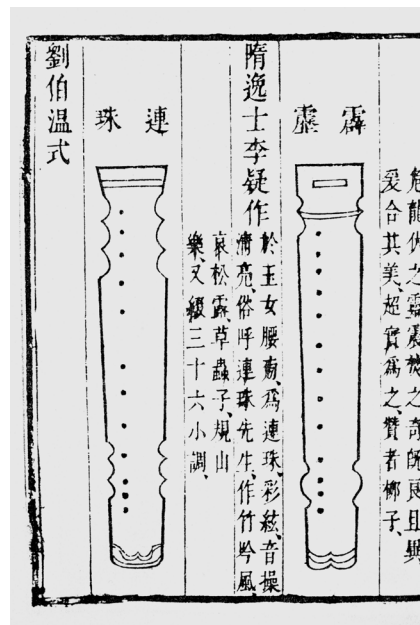 龍伏之靈之奇師
爰合其美、超實爲之、贊者榔子、
霹靂
隋逸士李疑作
於玉女腰前、爲連珠、彩絃、音操
清亮、俗呼連珠先生、作竹吟風、
哀松露、草蟲子、規山
樂、又綴三十六小調、
連珠
劉伯溫式